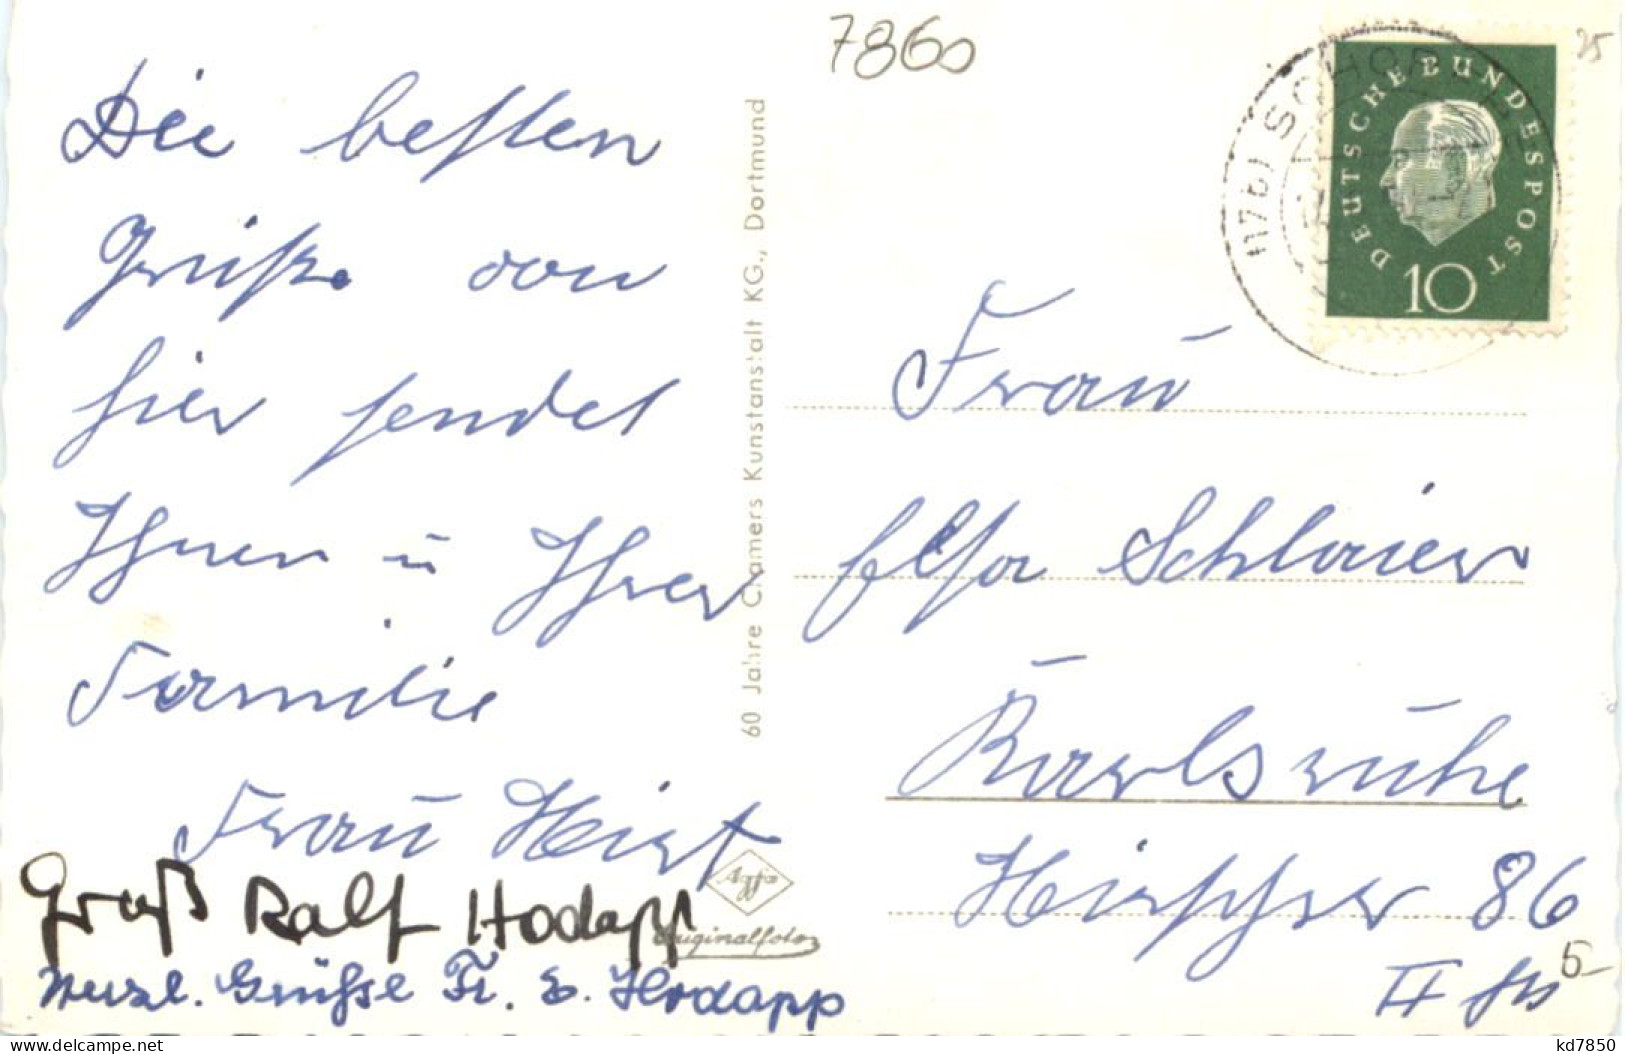 7860
25
Die besten
Grüße von
hier sendet
Ihnen u Ihrer
Familie
Frau Hirt
Gruß Ralf Hodapp
Herzl. Grüsse Fr. E. Hodapp
60 Jahre Cramers Kunstanstalt KG., Dortmund
Agfa
Originalfoto
(17b) SCHOP
DEUTSCHE BUNDESPOST
10
Frau
Elsa Schlaier
Karlsruhe
Hirschstr 86
II
5-
delcampe.net
kd7850